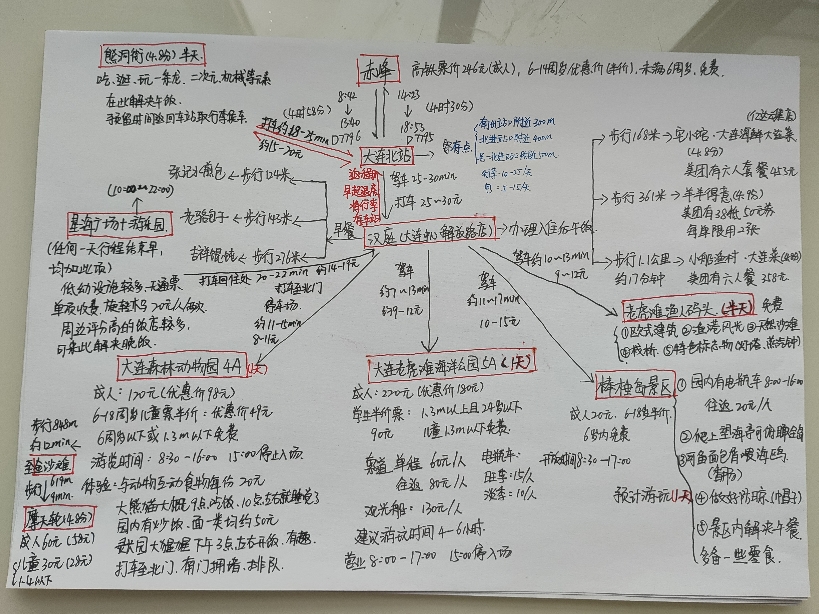 熊洞街(4.8分)半天
吃、逛、玩一条龙、二次元、机械等元素
在此解决午饭.
预留时间返回车站取行李集合.
赤峰
高铁票价246元(成人), 6-14周岁优惠价(半价), 未满6周岁,免费.
8:42
13:40
D7796
(4时58分)
14:23
18:53
D7795
(4时30分)
打车约18-25min
约15-20元
大连北站
寄存点
返程前
早起退房
将行李
存车站
驾车 25-30min
打车 25-30元
汉庭(大连 解放路店)
办理入住后午饭
步行168米→宅小馆·大连海鲜大连菜
(4.8分)
美团有六人套餐453元
步行361米→半半得意(4.9分)
美团有38抵50元券
每单限用2张
步行1.1公里→小船渔村·大连菜
约17分钟
美团有六人餐358元
早餐
张记小面包←步行124米
老骆包子←步行143米
吉祥馄饨←步行276米
(10:00-22:00)
星海广场+游乐园
(任何一天行程结束早,
均加此项)
低幼设施较多,无通票
单项收费,旋转木马20元/人每次
周边评分高的饭店较多,
可来此解决晚饭.
打车回住处 20-23min 约14-19元
打车至北门
停车场
约11-15min
8-11元
驾车
约9-13min
约9-12元
驾车
约11-17min
10-15元
驾车约10-13min
9-12元
老虎滩渔人码头(半天) 免费
①欧式建筑②渔港风光③天然沙滩
④栈桥. ⑤特色标志物(灯塔、
大连森林动物园4A (1天)
成人: 120元(优惠价98元)
6-18周岁儿童票半价: 优惠价49元
6周岁以下或1.3m以下免费
游览时间: 8:30-16:00 15:00停止入场.
体验: 与动物互动食物每份20元
大熊猫大概9点吃饭,10点左右就睡觉了
园内有炒饭、面一类均约50元
大猩猩下午3点左右开放, 有趣.
打车至北门, 南门拥堵、排队.
步行848m
约12min
金沙滩
步行619m
9min
摩天轮(4.8分)
成人60元(58元)
儿童30元(28元)
1.4以下
大连老虎滩海洋公园5A (1天)
成人: 220元(优惠价180元)
学生半价票: 1.3m以上且24岁以下
90元 儿童1.3m以下免费.
索道: 单程 60元/人
往返 80元/人
电瓶车:
旺季:15/人
淡季:10/人
观光船: 130元/人
建议游玩时间 4-6小时.
营业 8:00-17:00 15:00停入场
棒棰岛景区
成人20元. 6-18岁半价.
6岁内免费
开放时间8:30-17:00
预计游玩1天
①园内有电瓶车8:00-16:00
往返 20元/人
②爬上望海亭可俯瞰全岛
③可备面包看喂海鸥.
④做好防晒.(帽子)
⑤景区内解决午餐.
多备一些零食.